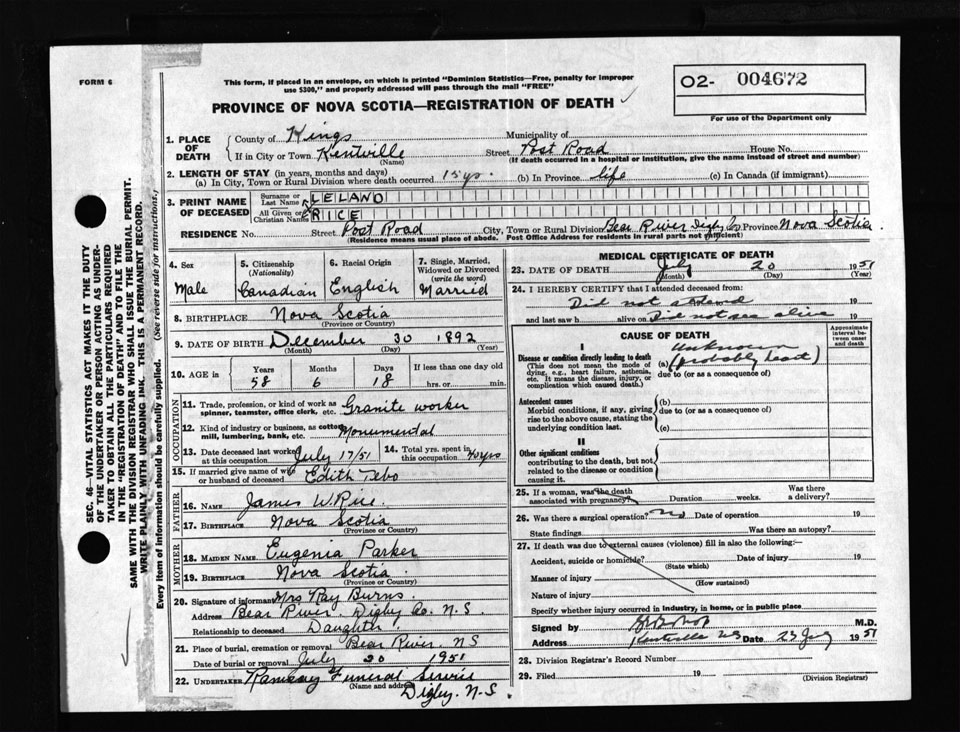 FORM 6
This form, if placed in an envelope, on which is printed "Dominion Statistics—Free, penalty for improper
use $300," and properly addressed will pass through the mail "FREE"
O2- 004672
For use of the Department only
PROVINCE OF NOVA SCOTIA—REGISTRATION OF DEATH ✓
1. PLACE OF DEATH
County of Kings Municipality of
If in City or Town Kentville (Name) Street Post Road House No.
(If death occurred in a hospital or institution, give the name instead of street and number)
2. LENGTH OF STAY (in years, months and days)
(a) In City, Town or Rural Division where death occurred 15 yrs. (b) In Province life (c) In Canada (if immigrant)
3. PRINT NAME OF DECEASED
Surname or Last Name LELAND
All Given or Christian Names RICE
RESIDENCE No. Street Post Road City, Town or Rural Division Bear River Digby Co Province Nova Scotia.
(Residence means usual place of abode. Post Office Address for residents in rural parts not sufficient)
4. Sex
Male
5. Citizenship
(Nationality)
Canadian
6. Racial Origin
English
7. Single, Married,
Widowed or Divorced
(write the word)
Married
8. BIRTHPLACE Nova Scotia
(Province or Country)
9. DATE OF BIRTH December 30 1892
(Month) (Day) (Year)
10. AGE in
Years Months Days If less than one day old
58 6 18 hrs. or min.
OCCUPATION
11. Trade, profession, or kind of work as
spinner, teamster, office clerk, etc. Granite worker
12. Kind of industry or business, as cotton
mill, lumbering, bank, etc. Monumental
13. Date deceased last worked
at this occupation July 17/51
14. Total yrs. spent in
this occupation 40 yrs
15. If married give name of wife
or husband of deceased Edith Tebo
FATHER
16. Name James W. Rice
17. BIRTHPLACE Nova Scotia
(Province or Country)
MOTHER
18. MAIDEN NAME Eugenia Parker
19. BIRTHPLACE Nova Scotia.
(Province or Country)
20. Signature of informant Mrs Ray Burns.
Address Bear River. Digby Co. N.S.
Relationship to deceased Daughter
21. Place of burial, cremation or removal Bear River. NS
Date of burial or removal July 20 1951
22. UNDERTAKER Ramsay Funeral Service
(Name and address)
Digby. N.S.
MEDICAL CERTIFICATE OF DEATH
23. DATE OF DEATH July 20 1951
(Month) (Day) (Year)
24. I HEREBY CERTIFY that I attended deceased from:
Did not attend 19
and last saw h alive on Did not see alive 19
CAUSE OF DEATH
Approximate
interval between
onset and death
I
Disease or condition directly leading to death
(This does not mean the mode of
dying, e.g., heart failure, asthenia,
etc. It means the disease, injury, or
complication which caused death.)
Unknown
(a) (probably heart)
due to (or as a consequence of)
Antecedent causes
Morbid conditions, if any, giving
rise to the above cause, stating the
underlying condition last.
(b)
due to (or as a consequence of)
(c)
II
Other significant conditions
contributing to the death, but not
related to the disease or condition
causing it.
25. If a woman, was the death
associated with pregnancy? Duration weeks. Was there
a delivery?
26. Was there a surgical operation? no Date of operation 19
State findings Was there an autopsy?
27. If death was due to external causes (violence) fill in also the following:—
Accident, suicide or homicide? Date of injury 19
(State which)
Manner of injury
(How sustained)
Nature of injury
Specify whether injury occurred in industry, in home, or in public place
Signed by M.D.
Address Kentville NS Date 23 July 1951
28. Division Registrar's Record Number
29. Filed 19
(Division Registrar)
SEC. 46—VITAL STATISTICS ACT MAKES IT THE DUTY
OF THE UNDERTAKER OR PERSON ACTING AS UNDER-
TAKER TO OBTAIN ALL THE PARTICULARS REQUIRED
IN THE "REGISTRATION OF DEATH" AND TO FILE THE
SAME WITH THE DIVISION REGISTRAR WHO SHALL ISSUE THE BURIAL PERMIT.
WRITE PLAINLY WITH UNFADING INK. THIS IS A PERMANENT RECORD.
Every item of information should be carefully supplied. (See reverse side for instructions.)